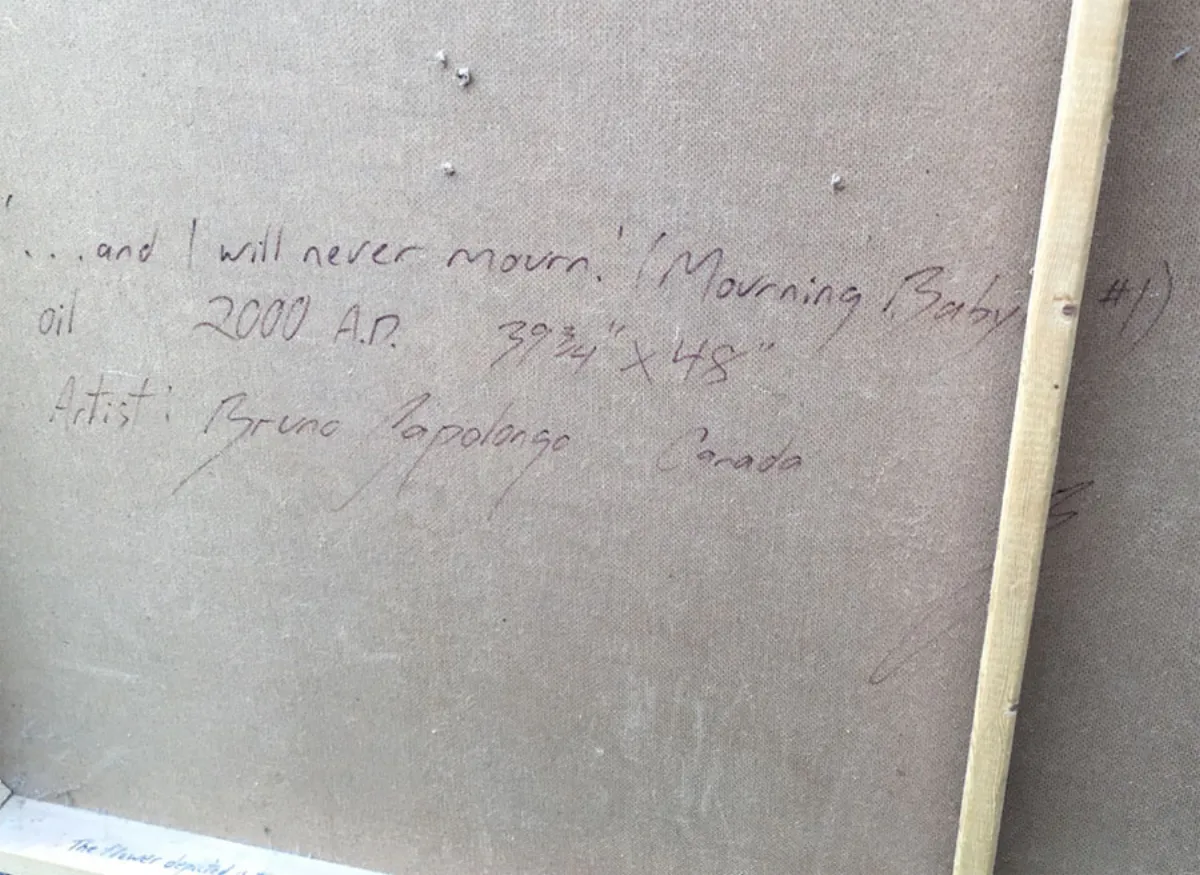 '...and I will never mourn.' (Mourning Baby #1)
oil 2000 A.D. 39 3/4" x 48"
Artist: Bruno Capolongo Canada
The flower depicted